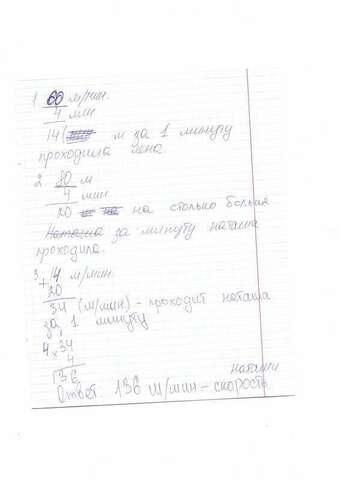 1. 60 м/мин.
4 мин
14 м за 1 минуту
проходила Лена.
2. 80 м
4 мин
20 на столько больше
Наташа за минуту наташа
проходила.
3. + 14 м/мин.
20
34 (м/мин) - проходит наташа
за 1 минуту
4. × 34
4
136
наташи
Ответ: 136 м/мин - скорость